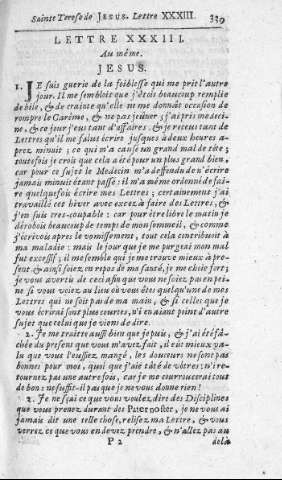 Sainte Terese de JESUS. Lettre XXXIII. 339
LETTRE XXXIII.
Au même.
JESUS.
1. JE suis guerie de la foiblesse qui me prit l'autre
jour. Il me sembloit que j'étois beaucoup remplie
de bile, & de crainte qu'elle ne me donnât occasion de
rompre le Carême, & ne pas jeûner; j'ai pris medeci-
ne, & ce jour j'eus tant d'affaires, & je receus tant de
Lettres qu'il me falut écrire jusques à deux heures a-
prez minuit; ce qui m'a causé un grand mal de tête;
toutefois je crois que cela a été pour un plus grand bien,
car pour ce sujet le Medecin m'a deffendu de n'écrire
jamais minuit étant passé: il m'a même ordonné de fai-
re quelquefois écrire mes Lettres; certainement j'ai
travaillé cet hiver avec excez à faire des Lettres, &
j'en suis tres-coupable: car pour être libre le matin je
dérobois beaucoup de temps de mon sommeil, & comme
j'écrivois aprés le vomissement, tout cela contribuoit à
ma maladie: mais le jour que je me purgeai mon mal
fut excessif; il me semble qui je me trouve mieux à pro-
sent, & ainsi soïez en repos de ma santé, je me choïe fort;
je vous avertis de ceci afin que vous ne soiez pas en pei-
ne si vous voiez au lieu où vous êtes quelqu'une de mes
Lettres qui ne soit pas de ma main, & si celles que je
vous écrirai sont plus courtes, n'en aiant point d'autre
sujet que celui que je viens de dire.
2. Je me traitte aussi bien que je puis, & j'ai été fâ-
chée du present que vous m'avez fait, il eût mieux va-
lu que vous l'eussiez mangé, les douceurs ne sont pas
bonnes pour moi, quoi que j'aie tâté de vôtres; n'y re-
tournez pas une autre fois, car je me courroucerai tout
de bon: ne suffit-il pas que je ne vous donne rien?
2. Je ne sçai ce que vous voulez dire des Disciplines
que vous prenez durant des Pater noster, je ne vous ai
jamais dit une telle chose, relisez ma Lettre, & vous
verrez ce que vous en devez prendre, & n'allez pas au
P 2 delà